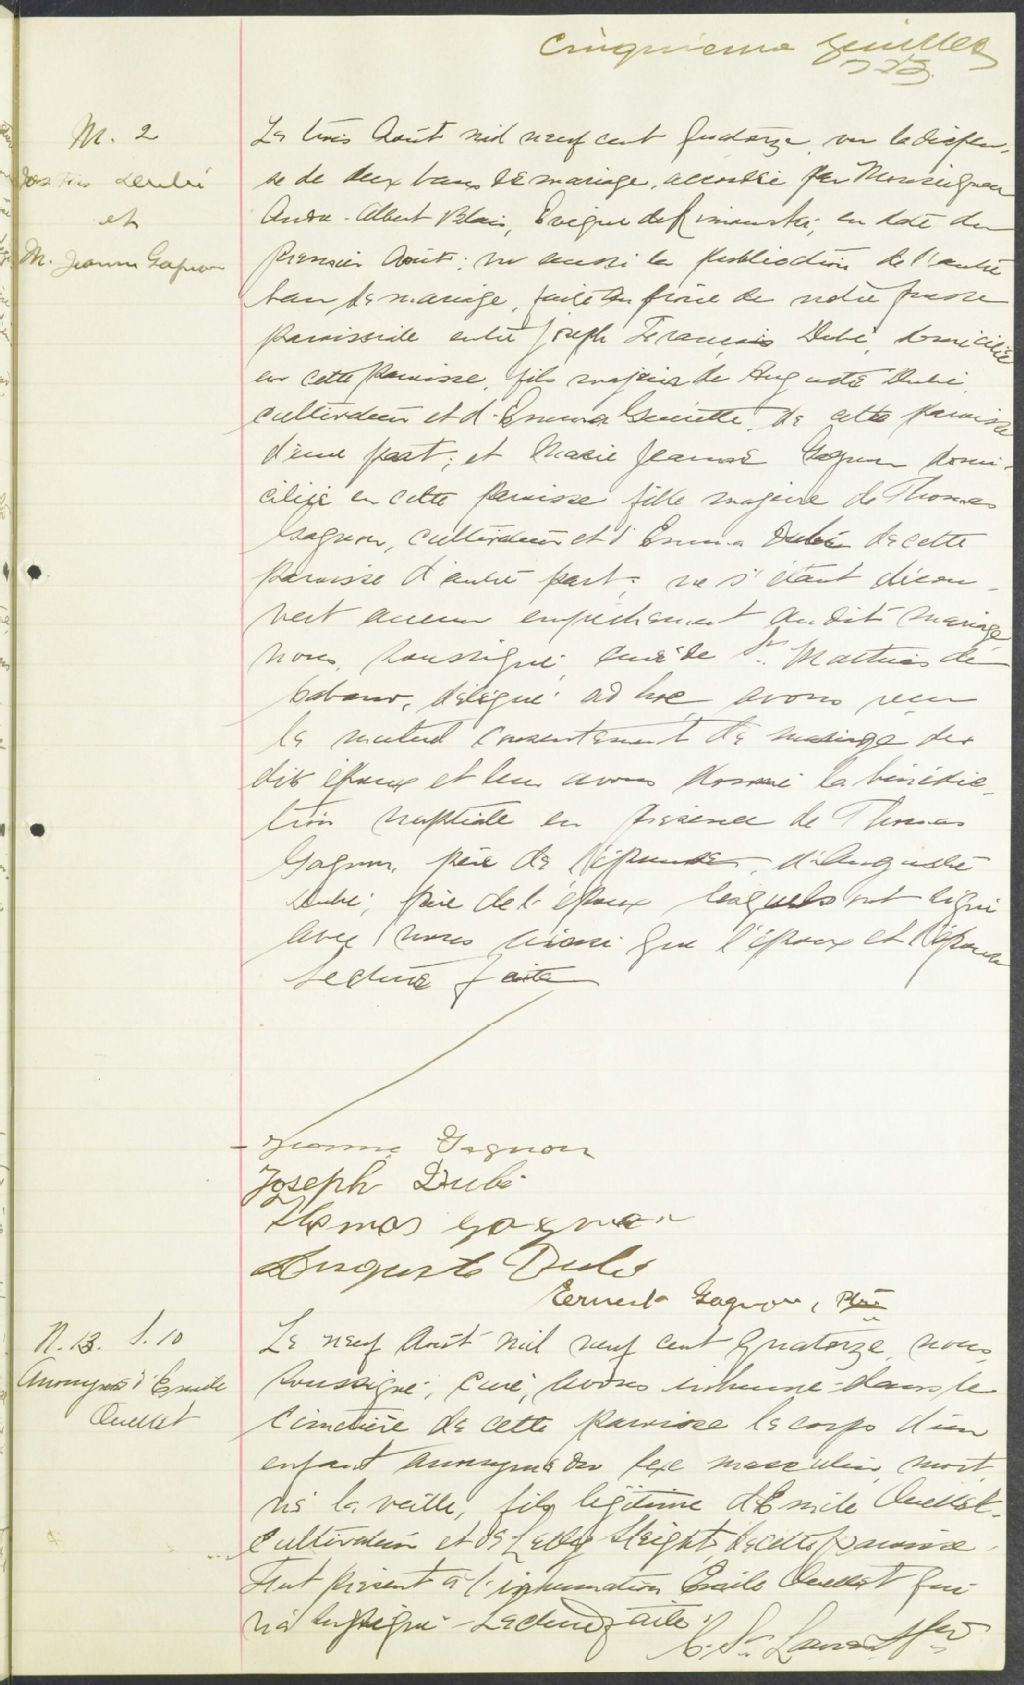 Cinquième feuillet
M. 2
Dubé
et
M. Jeanne Gagnon
Le trois Août mil neuf cent quatorze, vu la dispen-
se de deux bans de mariage, accordée par Monseigneur
André-Albert Blais, Évêque de Rimouski, en date du
premier Août; vu aussi la publication de l'autre
ban de mariage, faite au prône de notre messe
paroissiale entre Joseph François Dubé, domicilié
en cette paroisse, fils majeur de Auguste Dubé
cultivateur et d'Emma de cette paroisse
d'une part; et Marie Jeanne Gagnon domi-
ciliée en cette paroisse fille majeure de Thomas
Gagnon, cultivateur et d'Emma Dubé de cette
paroisse d'autre part; ne s'étant décou-
vert aucun empêchement au dit mariage
nous, soussigné, curé de St. Mathias de
Cabano, délégué ad hoc avons reçu
le mutuel consentement de mariage des
dits époux et leur avons donné la bénédic-
tion nuptiale en présence de Thomas
Gagnon, père de l'épouse, d'Auguste
Dubé, père de l'époux lesquels ont signé
avec nous ainsi que l'époux et l'épouse
Lecture faite
Jeanne Gagnon
Joseph Dubé
Thomas Gagnon
Auguste Dubé
Ernest Gagnon, Ptre
N. 13. S. 10
Anonyme d'Emile
Ouellet
Le neuf Août mil neuf cent quatorze, nous,
soussigné, curé, avons inhumé dans le
cimetière de cette paroisse le corps d'un
enfant anonyme du sexe masculin, mort-
né la veille, fils légitime d'Emile Ouellet
cultivateur et de de cette paroisse.
Fut présent à l'inhumation Emile Ouellet qui
n'a su signé - Lecture faite
C. St. Laurent Ptre